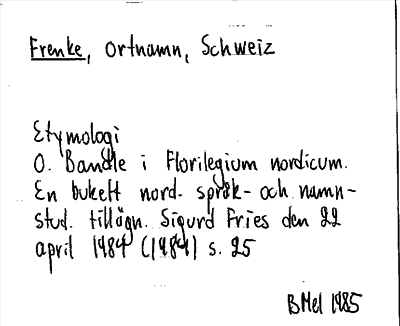 Frenke, Ortnamn, Schweiz
Etymologi
O. Bandle i Florilegium nordicum.
En bukett nord. språk- och namn-
stud. tillägn. Sigurd Fries den 22
april 1984 (1984) s. 25
BMel 1985